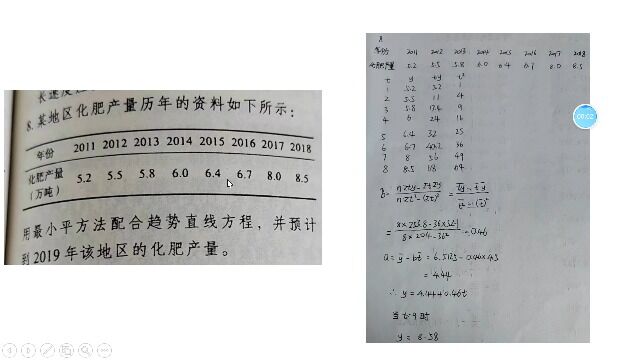 8.某地区化肥产量历年的资料如下所示：
年份 2011 2012 2013 2014 2015 2016 2017 2018
化肥产量（万吨） 5.2 5.5 5.8 6.0 6.4 6.7 8.0 8.5
用最小平方法配合趋势直线方程，并预计
到2019年该地区的化肥产量。
8
年份 2011 2012 2013 2014 2015 2016 2017 2018
化肥产量 5.2 5.5 5.8 6.0 6.4 6.7 8.0 8.5
t y ty t²
1 5.2 5.2 1
2 5.5 11 4
3 5.8 17.4 9
4 6 24 16
5 6.4 32 25
6 6.7 40.2 36
7 8 56 49
8 8.5 68 64
= 0.46
= 4.44
∴ y = 4.44+0.46t
当 t=9时
y = 8.58
00:02